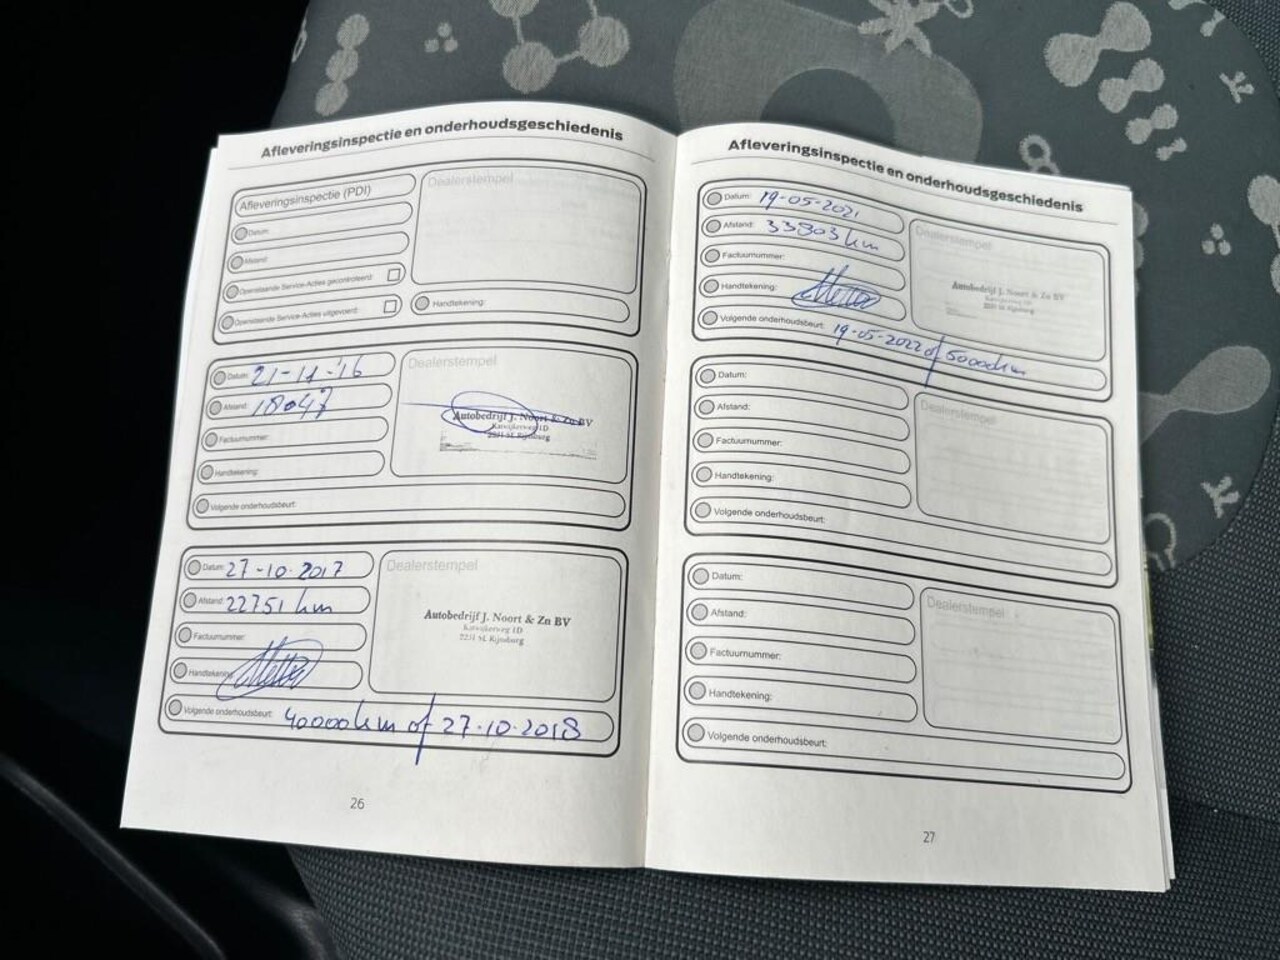 Afleveringsinspectie en onderhoudsgeschiedenis
Afleveringsinspectie (PDI)
Datum:
Afstand:
Openstaande Service-Acties gecontroleerd:
Openstaande Service-Acties uitgevoerd:
Dealerstempel
Handtekening:
Datum: 21-11-'16
Afstand: 18047
Factuurnummer:
Handtekening:
Volgende onderhoudsbeurt:
Dealerstempel
Autobedrijf J. Noort & Zn BV
Katwijkerweg 1D
2231 M. Rijnsburg
Datum: 27-10-2017
Afstand: 22751 km
Factuurnummer:
Handtekening:
Volgende onderhoudsbeurt: 40000km of 27-10-2018
Dealerstempel
Autobedrijf J. Noort & Zn BV
Katwijkerweg 1D
2231 M. Rijnsburg
26
Afleveringsinspectie en onderhoudsgeschiedenis
Datum: 19-05-2021
Afstand: 33803 km
Factuurnummer:
Handtekening:
Volgende onderhoudsbeurt: 19-05-2022 of 50000km
Dealerstempel
Autobedrijf J. Noort & Zn BV
Katwijkerweg 1D
2231 M. Rijnsburg
Datum:
Afstand:
Factuurnummer:
Handtekening:
Volgende onderhoudsbeurt:
Dealerstempel
Datum:
Afstand:
Factuurnummer:
Handtekening:
Volgende onderhoudsbeurt:
Dealerstempel
27